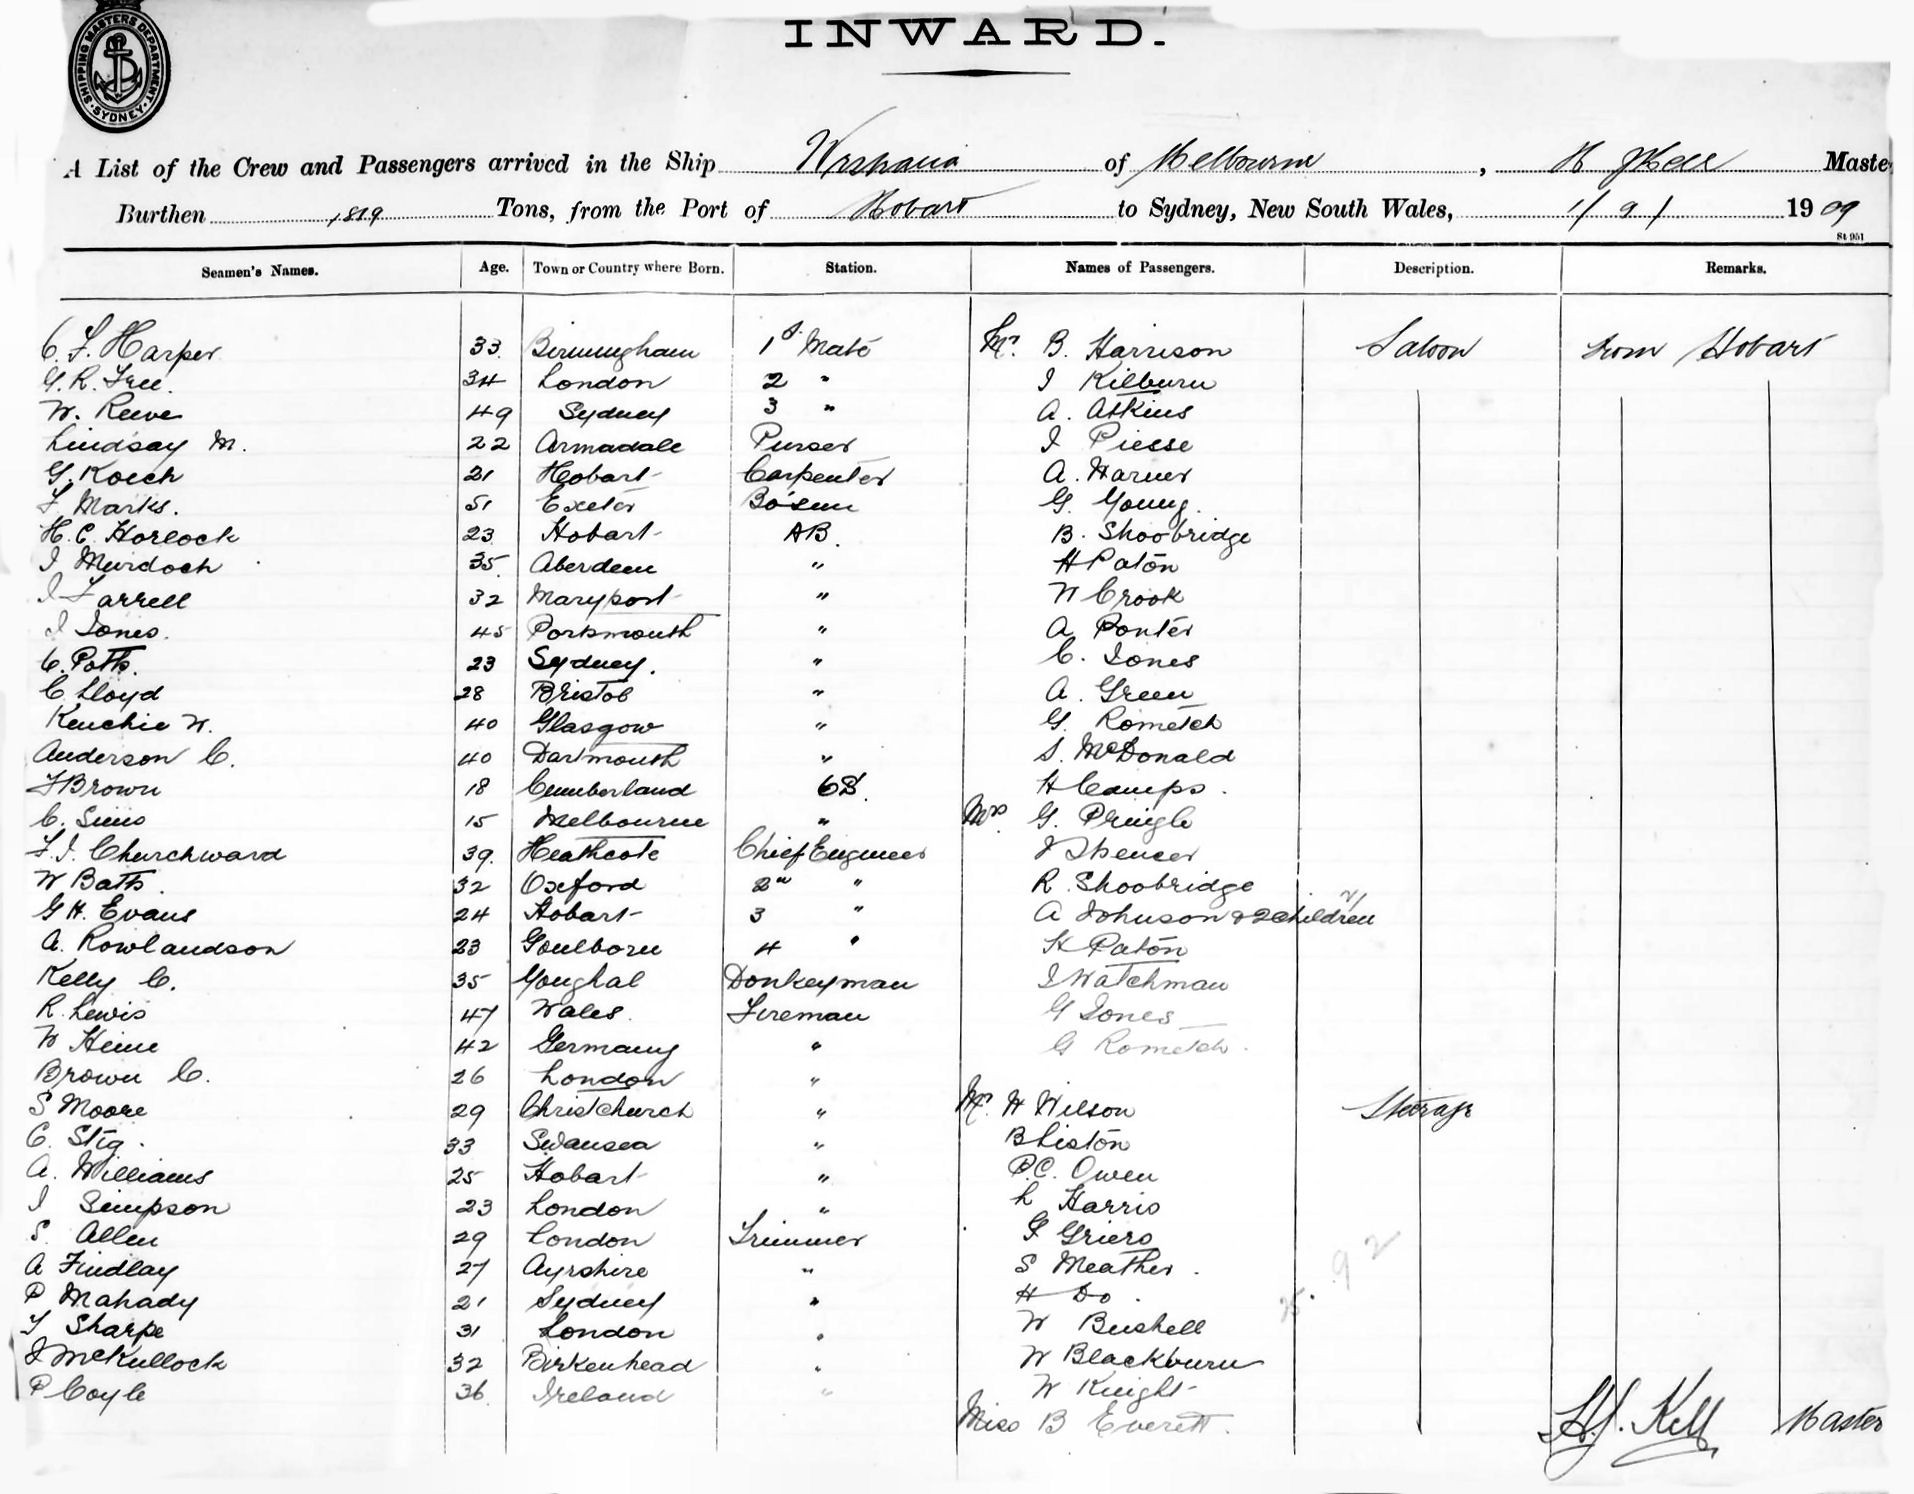 SHIPPING MASTERS DEPARTMENT · SYDNEY
INWARD.
A List of the Crew and Passengers arrived in the Ship of Melbourne, H J Kell Master
Burthen 1819 Tons, from the Port of Hobart to Sydney, New South Wales, 1/9/ 1909
St 951
Seamen's Names. Age. Town or Country where Born. Station. Names of Passengers. Description. Remarks.
C. F. Harper 33 Birmingham 1st Mate Mr. B. Harrison Saloon from Hobart
G. R. Free. 34 London 2 " J Kilburn
W. Reeve 49 Sydney 3 " A. Atkins
Lindsay M. 22 Armadale Purser J Piesse
G. Koech 21 Hobart Carpenter A. Warner
F. Marks. 51 Exeter Bo'sun G. Young.
H. C. Horlock 23 Hobart AB. B. Shoobridge
J Murdoch 35. Aberdeen " H Paton
J Farrell 32 Maryport " W Crook
J Jones. 45 Portsmouth " A Ponter
C. Potts. 23 Sydney. " C. Jones
C. Lloyd 28 Bristol " A. Green
Kenchie W. 40 Glasgow " G. Rometch
Anderson C. 40 Dartmouth " S. McDonald
F Brown 18 Cumberland OS. H Camps.
C. Sims 15 Melbourne " Mrs G. Pringle
F. J. Churchward 39. Heathcote Chief Engineer J Spencer
W Batts. 32 Oxford 2nd " R. Shoobridge
G H. Evans 24 Hobart 3 " A Johnson & 2 children
A. Rowlandson 23 Goulborn 4 " H Paton
Kelly C. 35 Youghal Donkeyman J Watchman
R. Lewis 47 Wales. Fireman G Jones
W Heine 42 Germany " G Rometch.
Brown C. 26 London "
S Moore 29 Christchurch " Mr. H Wilson Steerage
C. Stig. 33 Swansea " B Liston
A. Williams 25 Hobart " P.C. Owen
J Simpson 23 London " L Harris
S. Allen 29 London Trimmer G Griers
A Findlay 27 Ayrshire " S Meather.
P Mahady 21 Sydney " H Do.
T Sharpe 31 London " W Bushell
J McKullock 32 Birkenhead " W Blackburn
P Coyle 36. Ireland " W Knight
Miss B Everett. H. J. Kell Master